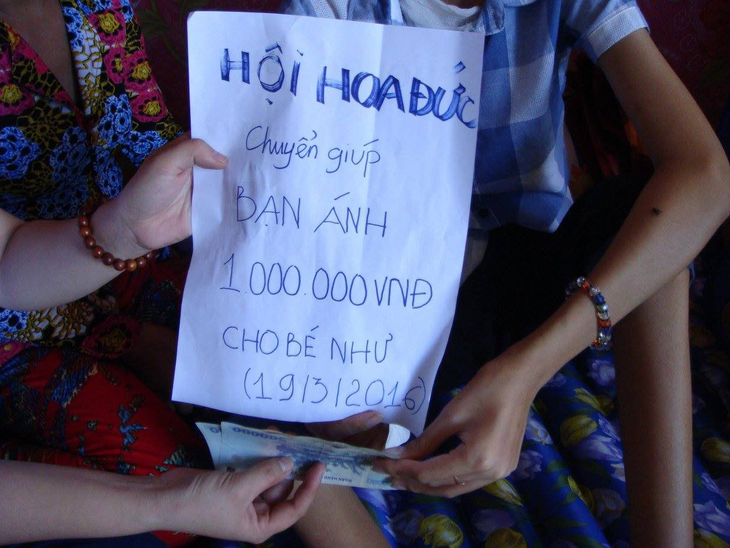 HỘI HOA ĐỨC
Chuyển giúp
BẠN ÁNH
1.000.000 VNĐ
CHO BÉ NHƯ
(19/3/2016)